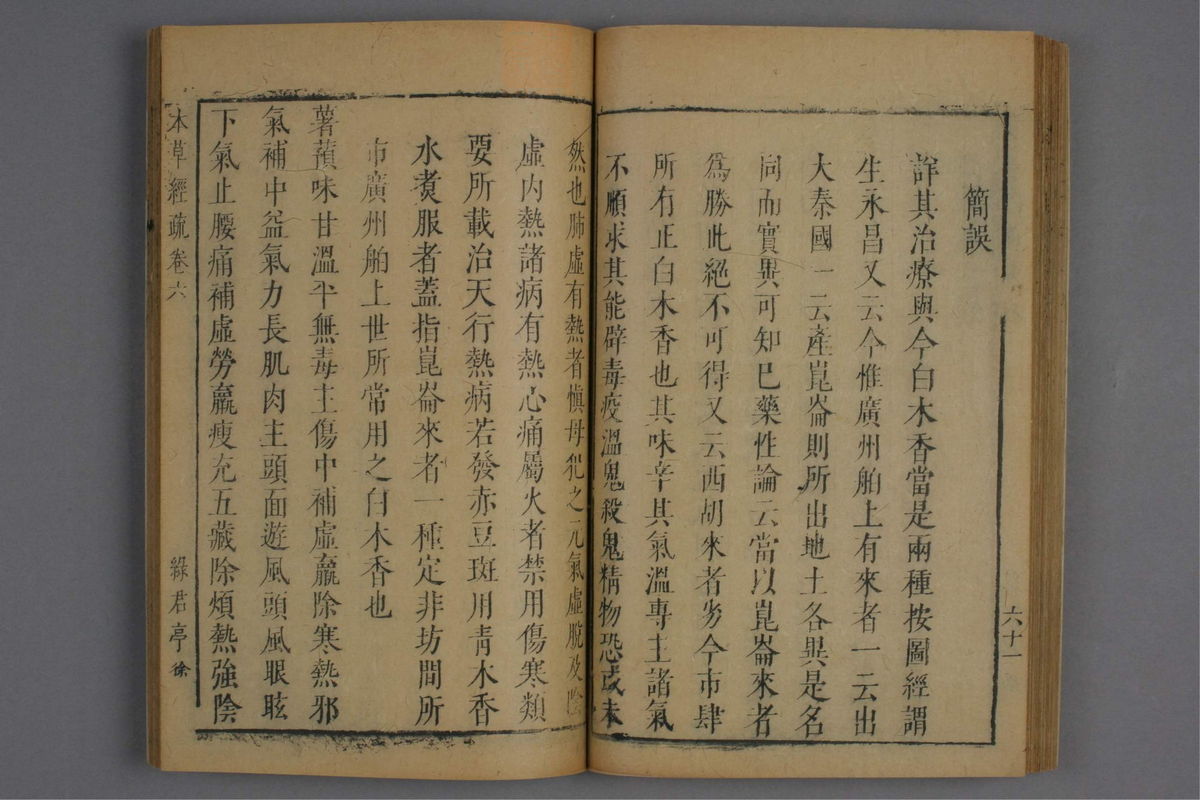 簡誤
詳其治療與今白木香當是兩種按圖經謂
生永昌又云今惟廣州舶上有來者一云出
大秦國一云產崑崙則所出地土各異是名
同而實異可知巳藥性論云當以崑崙來者
爲勝此絕不可得又云西胡來者劣今市肆
所有正白木香也其味辛其氣溫專主諸氣
不順求其能辟毒疫溫鬼殺鬼精物恐或未
六十一
然也肺虛有熱者愼毋犯之元氣虛脫及陰
虛內熱諸病有熱心痛屬火者禁用傷寒類
要所載治天行熱病若發赤豆斑用靑木香
水煑服者蓋指崑崙來者一種定非坊間所
市廣州舶上世所常用之白木香也
薯蕷味甘溫平無毒主傷中補虛羸除寒熱邪
氣補中益氣力長肌肉主頭面遊風頭風眼眩
下氣止腰痛補虛勞羸瘦充五藏除煩熱強陰
本草經疏卷六
綠君亭 徐